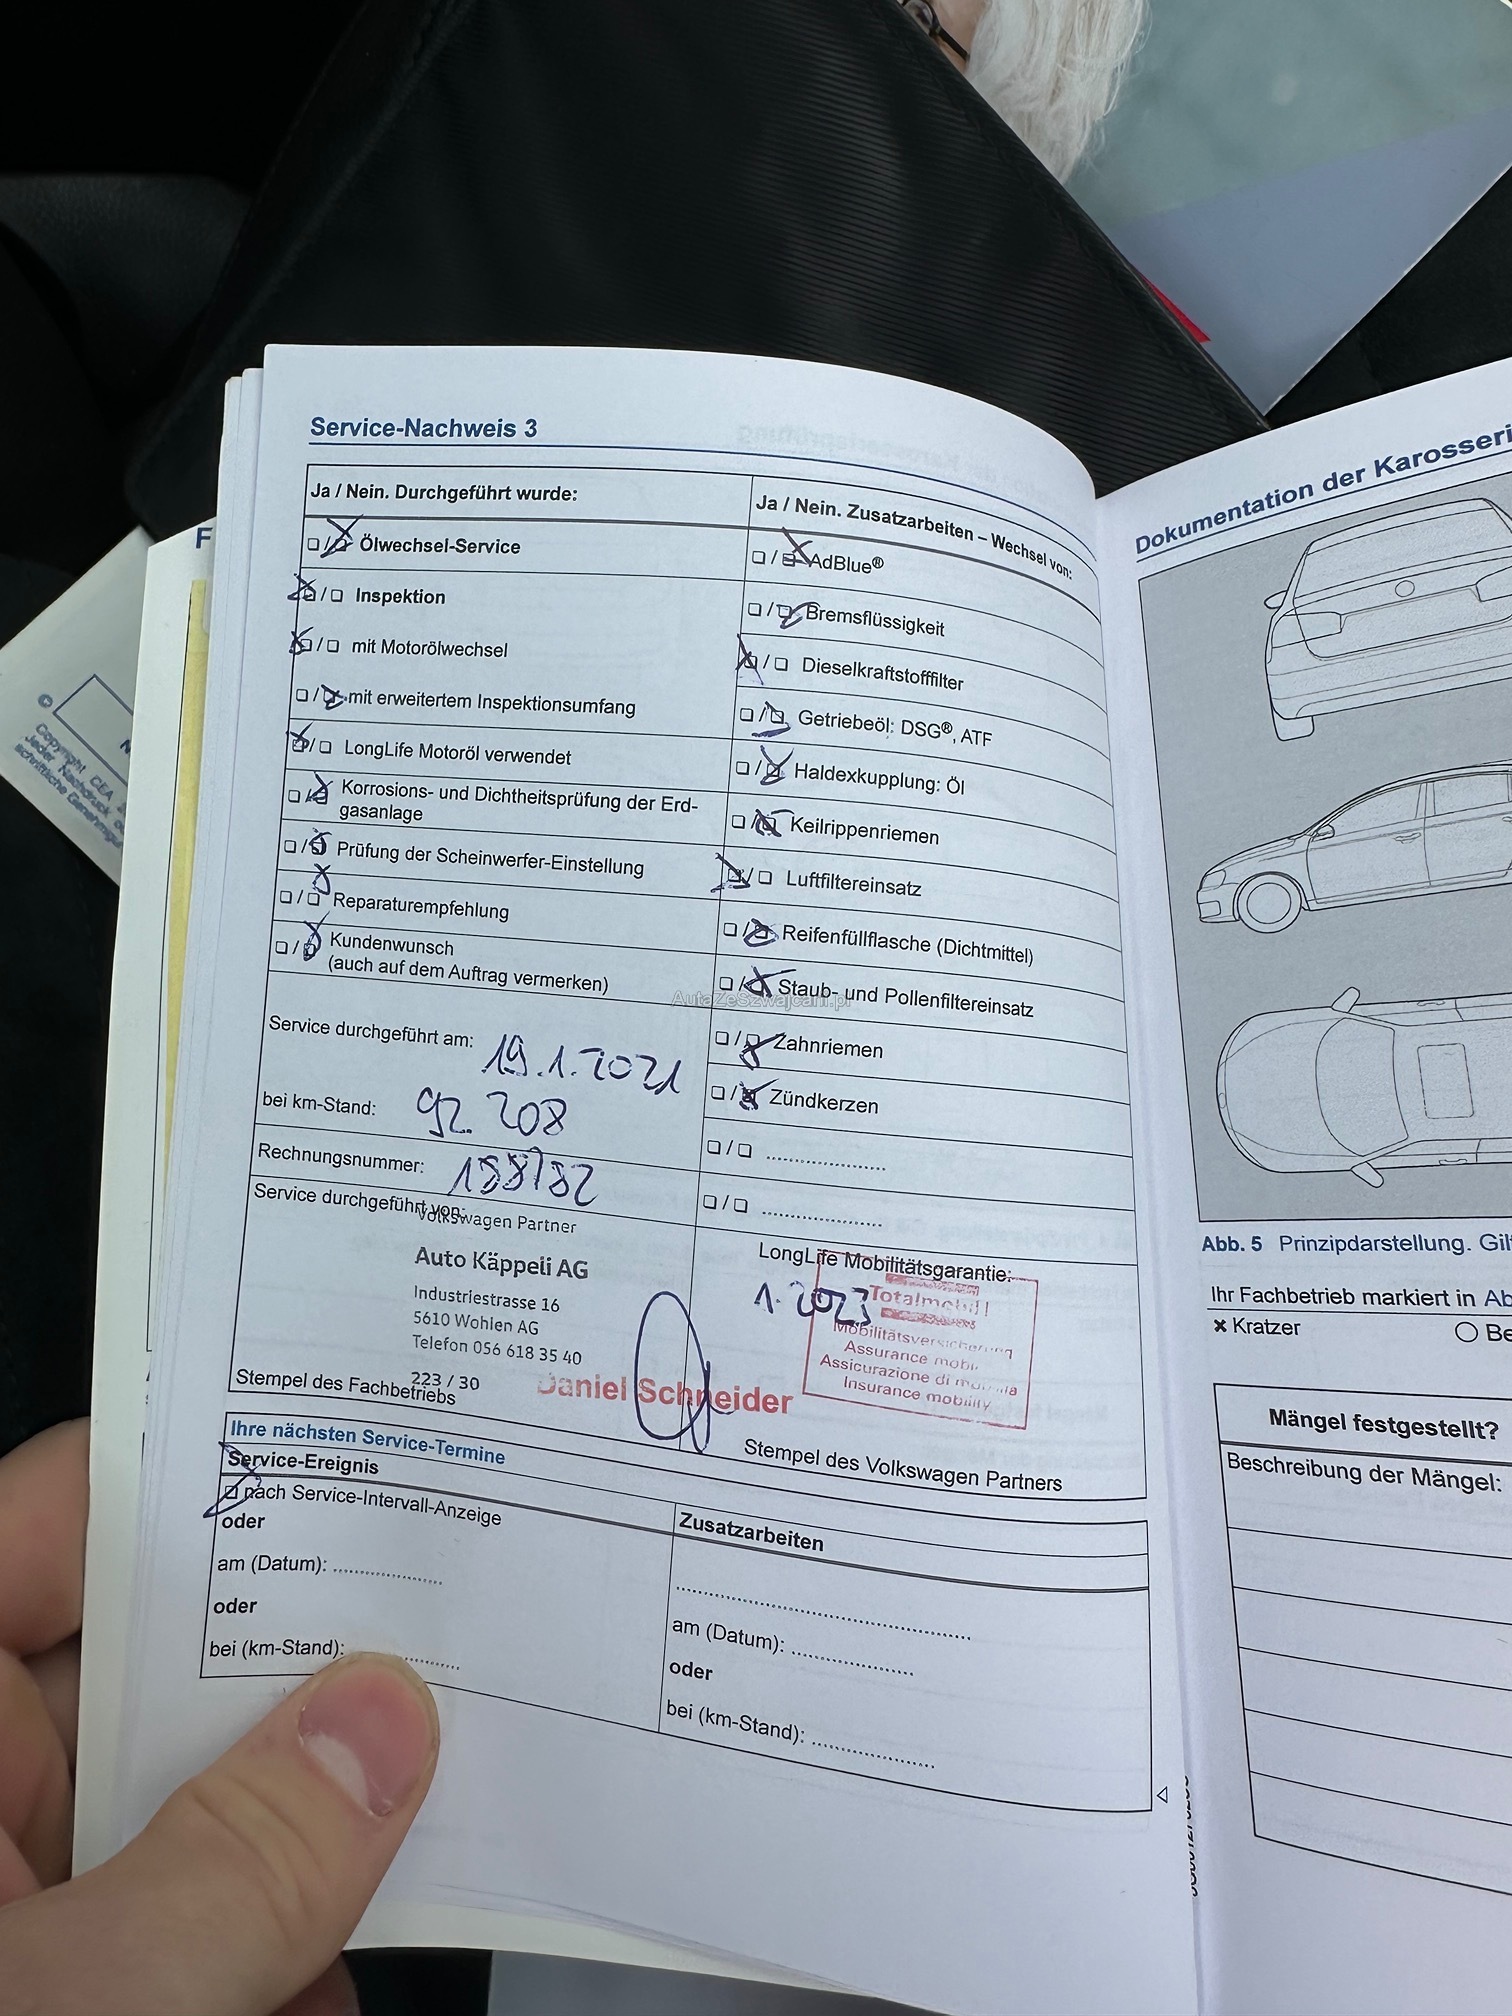 Service-Nachweis 3
Ja / Nein. Durchgeführt wurde:
Ölwechsel-Service
Inspektion
mit Motorölwechsel
mit erweitertem Inspektionsumfang
LongLife Motoröl verwendet
Korrosions- und Dichtheitsprüfung der Erd-
gasanlage
Prüfung der Scheinwerfer-Einstellung
Reparaturempfehlung
Kundenwunsch
(auch auf dem Auftrag vermerken)
Service durchgeführt am: 19.1.2021
bei km-Stand: 92.208
Rechnungsnummer: 188782
Service durchgeführt von:
Volkswagen Partner
Auto Käppeli AG
Industriestrasse 16
5610 Wohlen AG
Telefon 056 618 35 40
223 / 30
Stempel des Fachbetriebs
Ja / Nein. Zusatzarbeiten – Wechsel von:
AdBlue®
Bremsflüssigkeit
Dieselkraftstofffilter
Getriebeöl: DSG®, ATF
Haldexkupplung: Öl
Keilrippenriemen
Luftfiltereinsatz
Reifenfüllflasche (Dichtmittel)
Staub- und Pollenfiltereinsatz
Zahnriemen
Zündkerzen
LongLife Mobilitätsgarantie:
1.2023
Totalmobil!
Mobilitätsversicherung
Assurance mobi
Assicurazione di
Insurance mobility
Daniel Schneider
Stempel des Volkswagen Partners
Ihre nächsten Service-Termine
Service-Ereignis
nach Service-Intervall-Anzeige
oder
am (Datum):
oder
bei (km-Stand):
Zusatzarbeiten
am (Datum):
oder
bei (km-Stand):
AutaZeSzwajcarii.pl
Dokumentation der Karosseri
Abb. 5 Prinzipdarstellung. Gil
Ihr Fachbetrieb markiert in Ab
Kratzer
Be
Mängel festgestellt?
Beschreibung der Mängel:
F
© Copyright